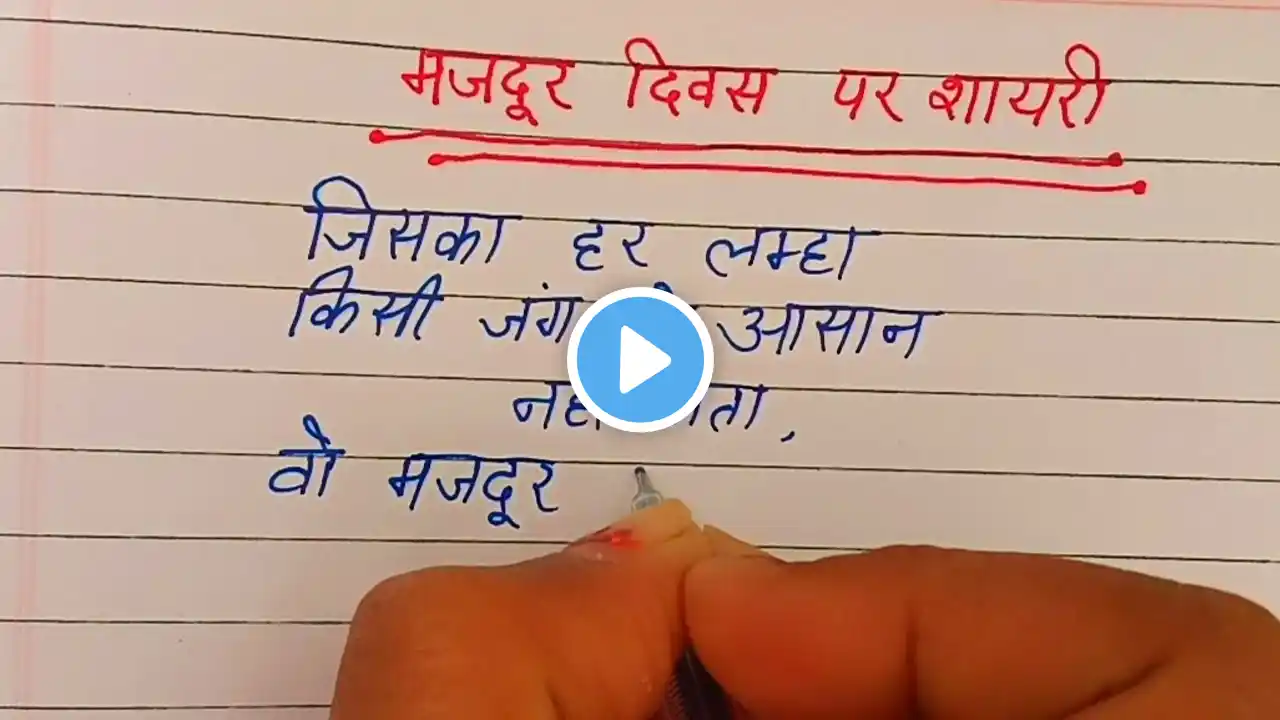 मजदूर दिवस पर शायरी
जिसका हर लम्हा
किसी जंग आसान
वो मजदूर